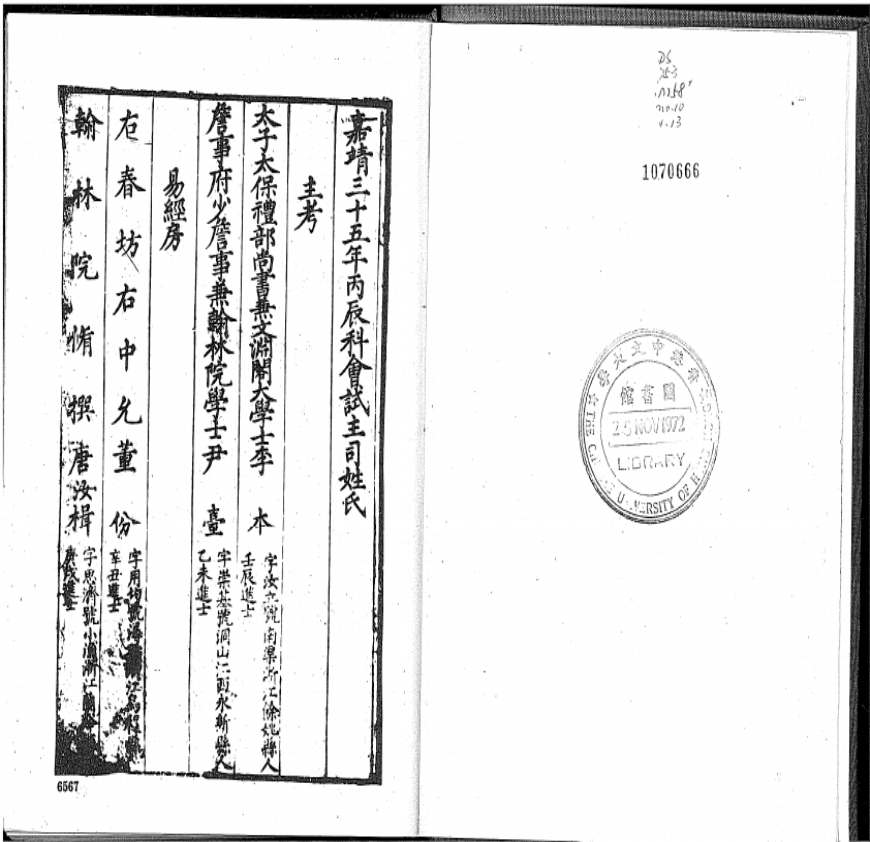 嘉靖三十五年丙辰科會試主司姓氏
主考
太子太保禮部尚書兼文淵閣大學士李 本
字汝立號南渠浙江餘姚縣人
壬辰進士
詹事府少詹事兼翰林院學士尹 臺
字崇基號洞山江西永新縣人
乙未進士
易經房
右春坊右中允董 份
字用均號潯 江烏程縣
辛丑進士
翰林院脩撰唐汝楫
字思濟號小漁浙江蘭谿
庚戌進士
6567
DS
753
no.10
v.13
1070666
香港中文大學
圖書館
25 NOV 1972
LIBRARY
THE UNIVERSITY OF HONG KONG